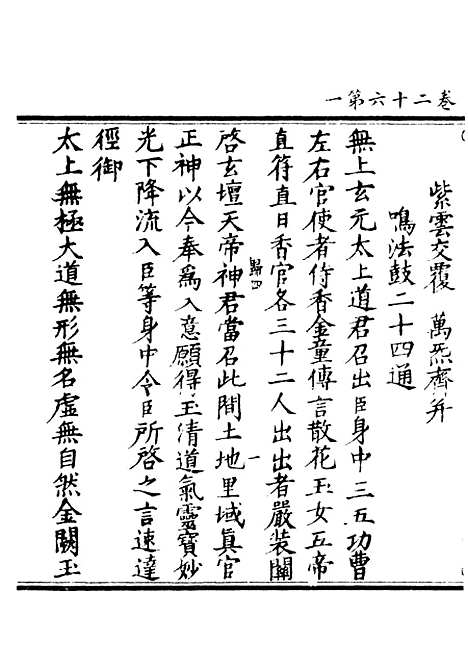 卷二十六第一
紫雲交覆　萬炁齊并
鳴法鼓二十四通
無上玄元太上道君召出臣身中三五功曹
左右官使者侍香金童傳言散花玉女五帝
直符直日香官各三十二人出出者嚴装關
歸四
一
啓玄壇天帝神君當召此間土地里域眞官
正神以今奉爲入意願得玉清道氣靈寶妙
光下降流入臣等身中令臣所啓之言速達
徑御
太上無極大道無形無名虛無自然金闕玉